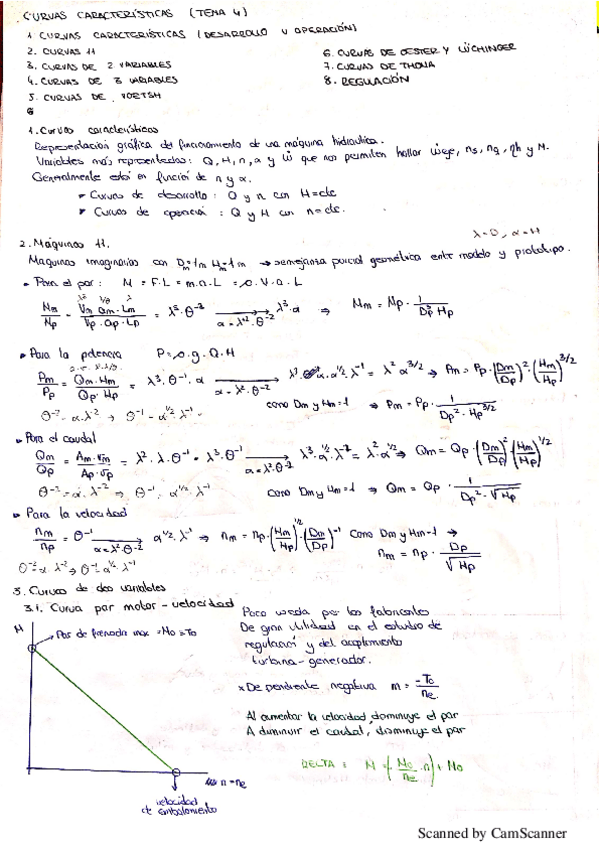 CURVAS CARACTERÍSTICAS (TEMA 4)
1. CURVAS CARACTERÍSTICAS (DESARROLLO Y OPERACIÓN)
2. CURVAS 11
3. CURVAS DE 2 VARIABLES
4. CURVAS DE 3 VARIABLES
5. CURVAS DE
6. CURVAS DE OESTER Y WICHINGER
7. CURVAS DE THOMA
8. REGULACIÓN
1. Curvas características
Representación gráfica del funcionamiento de una máquina hidraulica.
Variables más representadas: Q, H, n, α y Ẇ que nos permiten hallar Ẇeje, ns, nq, ηh y M.
Generalmente están en función de n y α.
Curvas de desarrollo : Q y n con H=cte
Curvas de operación : Q y H con n=cte.
λ=D, α=H
2. Máquinas 11.
Maquinas imaginarias con Dm=1m Hm=1m → semejanza parcial geométrica entre modelo y prototipo.
• Para el par : M = F·L = m·a·L = ρ·V·a·L
Mm/Mp = Vm·am·Lm / Vp·ap·Lp = λ⁵·θ⁻² → α=λ²·θ⁻² λ³·α ⇒ Mm = Mp · 1/Dp³ Hp
• Para la potencia P=ρ·g·Q·H
Pm/Pp = Qm·Hm / Qp·Hp = λ³·θ⁻¹·α → α=λ²·θ⁻² λ³·α·α^1/2·λ⁻¹ = λ² α^3/2 → Pm = Pp·(Dm/Dp)²·(Hm/Hp)^3/2
θ⁻²=α·λ⁻² → θ⁻¹=α^1/2·λ⁻¹ como Dm y Hm=1 ⇒ Pm = Pp · 1/Dp²·Hp^3/2
• Para el caudal
Qm/Qp = Am·vm / Ap·vp = λ²·λ·θ⁻¹ = λ³·θ⁻¹ → α=λ²·θ⁻² λ³·α^1/2·λ⁻¹ = λ²·α^1/2 ⇒ Qm = Qp·(Dm/Dp)²·(Hm/Hp)^1/2
θ⁻²=α·λ⁻² ⇒ θ⁻¹ = α^1/2·λ⁻¹ como Dm y Hm=1 ⇒ Qm = Qp · 1/Dp²·√Hp
• Para la velocidad
nm/np = θ⁻¹ → α=λ²·θ⁻² α^1/2·λ⁻¹ ⇒ nm = np·(Hm/Hp)^1/2·(Dm/Dp)⁻¹ como Dm y Hm=1 →
θ⁻²=α·λ⁻² ⇒ θ⁻¹=α^1/2·λ⁻¹ nm = np · Dp/√Hp
3. Curvas de dos variables
3.1. Curva par motor-velocidad
M
Par de frenada max = Mo = To
n = ne
velocidad
de embalamiento
Poco usada por los fabricantes
De gran utilidad en el estudio de
regulación y del acoplamiento
turbina-generador.
* De pendiente negativa m = -To/ne
Al aumentar la velocidad, disminuye el par
A disminuir el caudal, disminuye el par
RECTA : M = (-Mo/ne · n) + Mo
Scanned by CamScanner